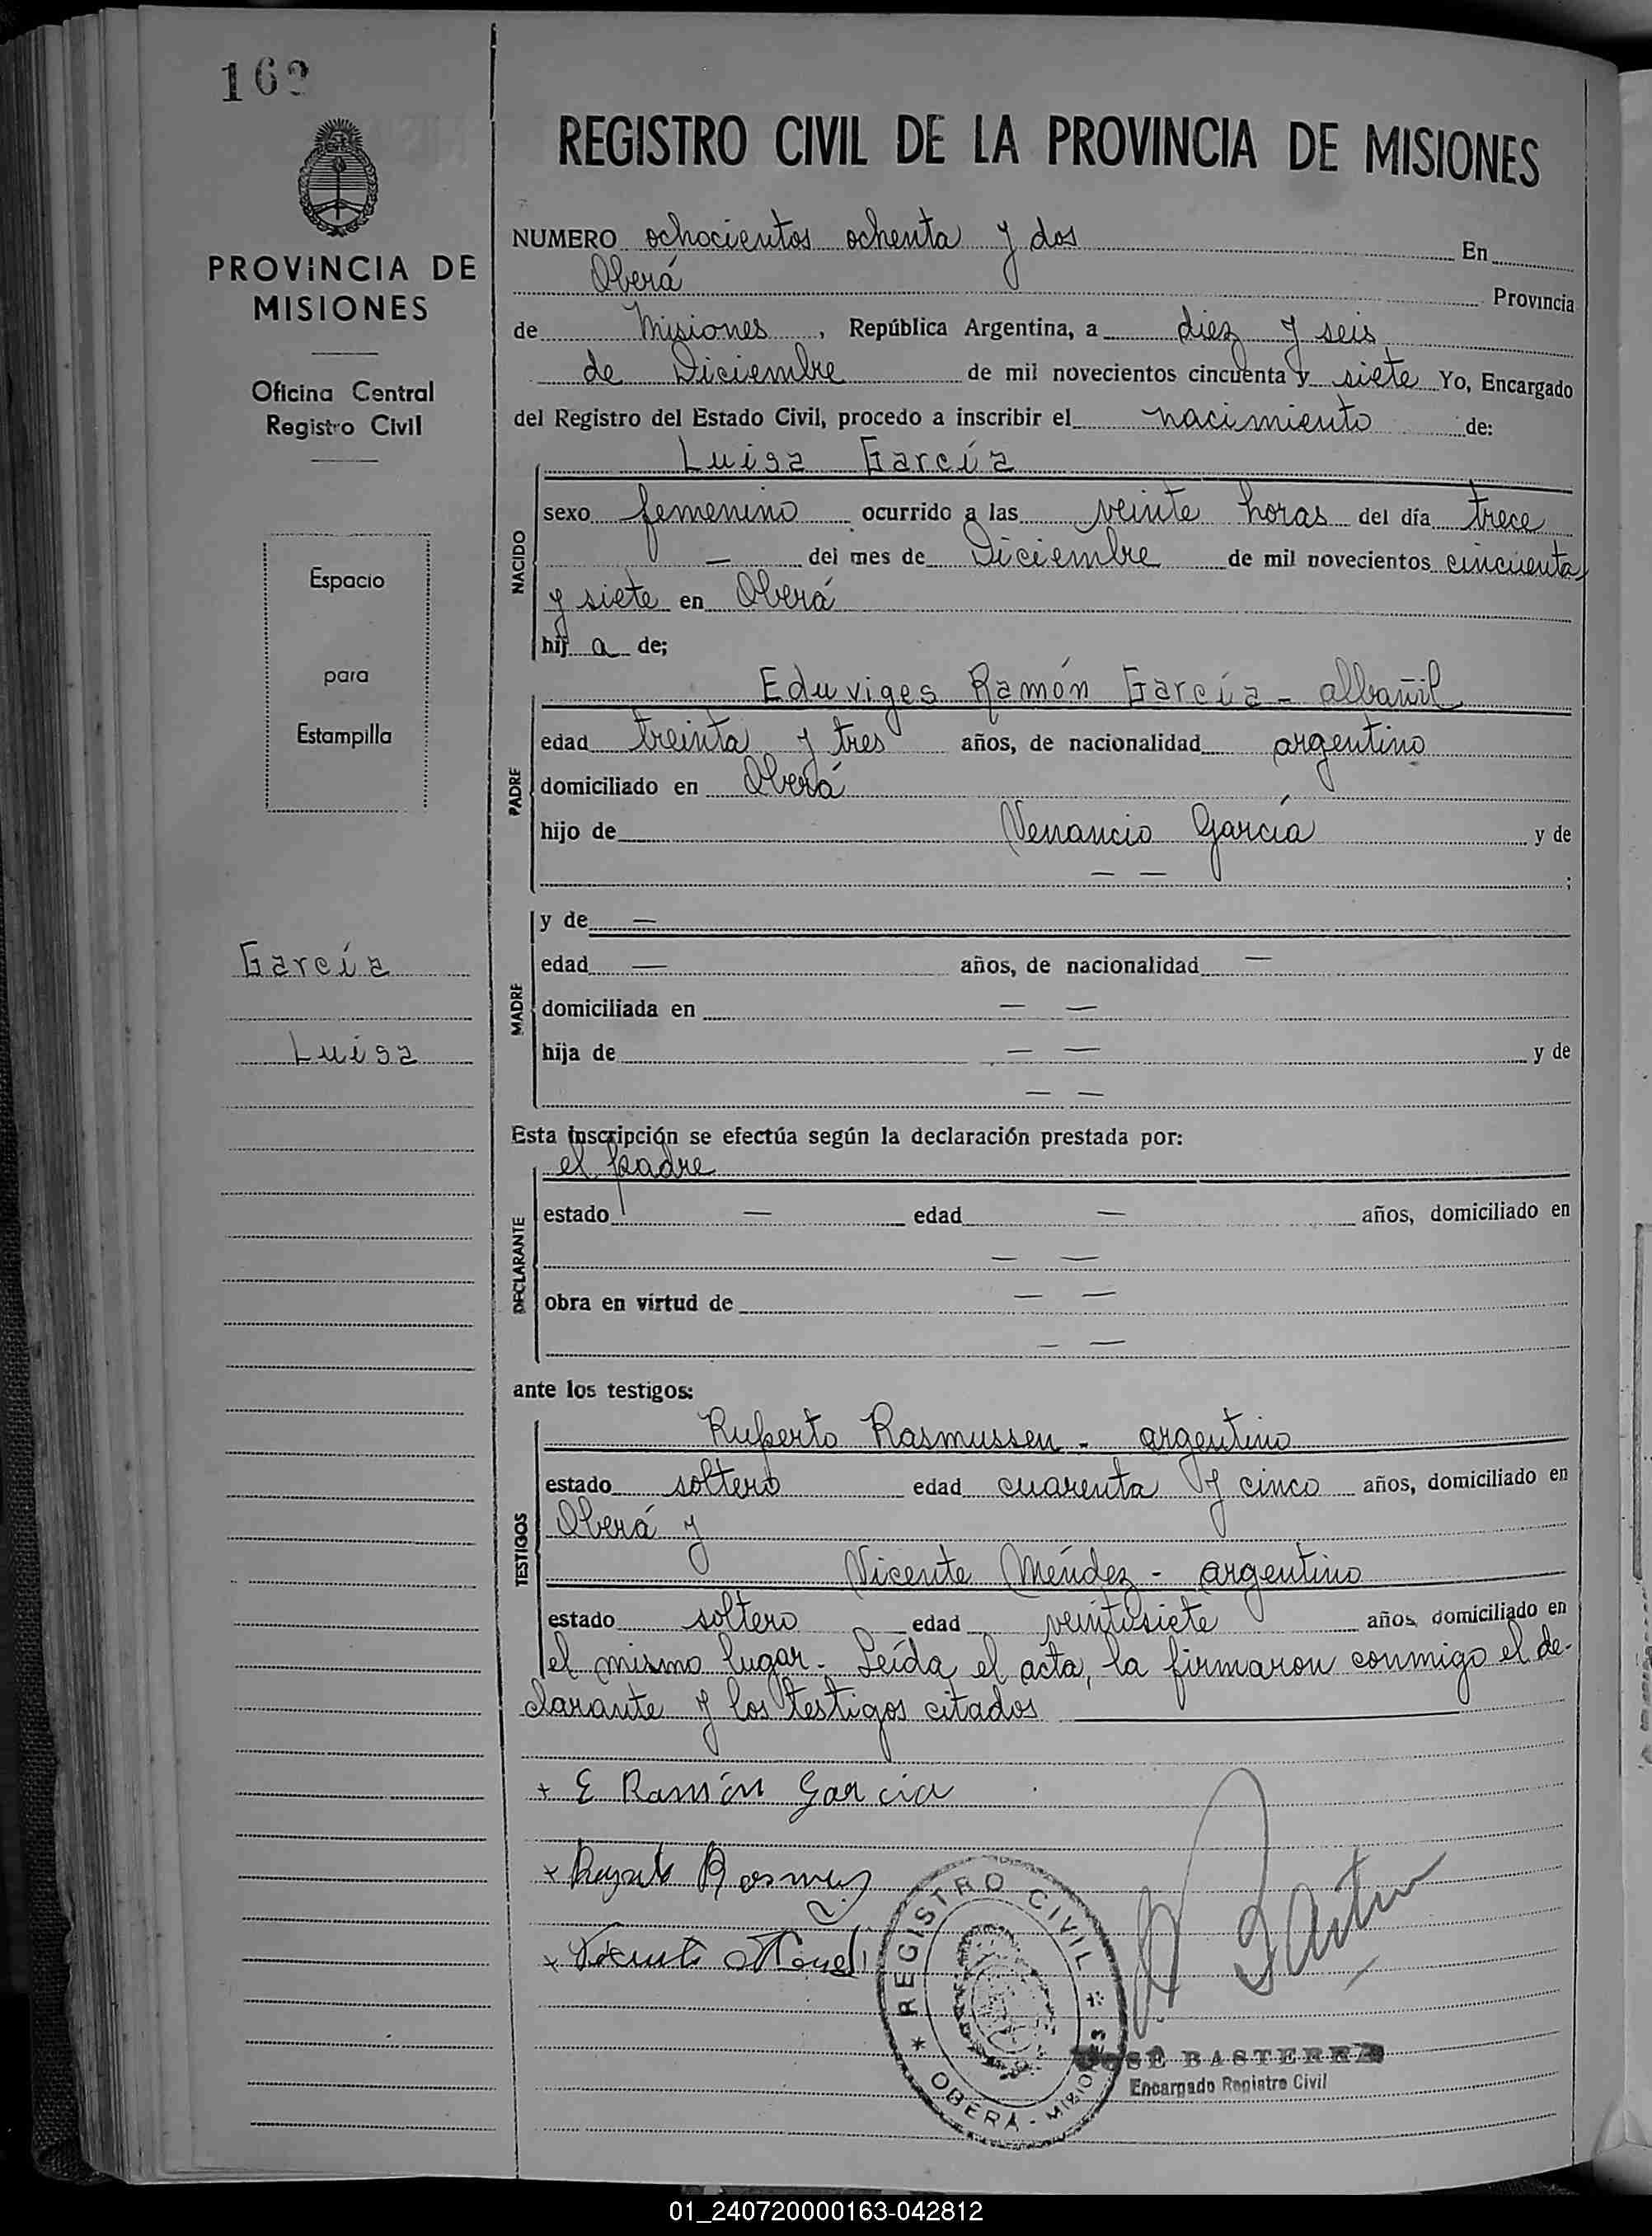 162
PROVINCIA DE
MISIONES
Oficina Central
Registro Civil
Espacio
para
Estampilla
García
Luisa
REGISTRO CIVIL DE LA PROVINCIA DE MISIONES
NUMERO ochocientos ochenta y dos En
Oberá Provincia
de Misiones, República Argentina, a diez y seis
de Diciembre de mil novecientos cincuenta y siete Yo, Encargado
del Registro del Estado Civil, procedo a inscribir el nacimiento de:
Luisa García
NACIDO
sexo femenino ocurrido a las veinte horas del día trece
— del mes de Diciembre de mil novecientos cincuenta
y siete en Oberá
hij a de;
PADRE
Eduviges Ramón García - albañil
edad treinta y tres años, de nacionalidad argentino
domiciliado en Oberá
hijo de Venancio García y de
— — ;
MADRE
y de —
edad — años, de nacionalidad —
domiciliada en — —
hija de — — y de
— —
Esta inscripción se efectúa según la declaración prestada por:
el padre
DECLARANTE
estado — edad — años, domiciliado en
— —
obra en virtud de — —
— —
ante los testigos:
TESTIGOS
Ruperto Rasmussen - argentino
estado soltero edad cuarenta y cinco años, domiciliado en
Oberá y
Vicente Méndez - argentino
estado soltero edad veintisiete años domiciliado en
el mismo lugar. Leída el acta, la firmaron conmigo el de-
clarante y los testigos citados
+ E Ramón Garcia
REGISTRO CIVIL
OBERÁ - MISIONES
JOSÉ BASTERRA
Encargado Registro Civil
01_240720000163-042812